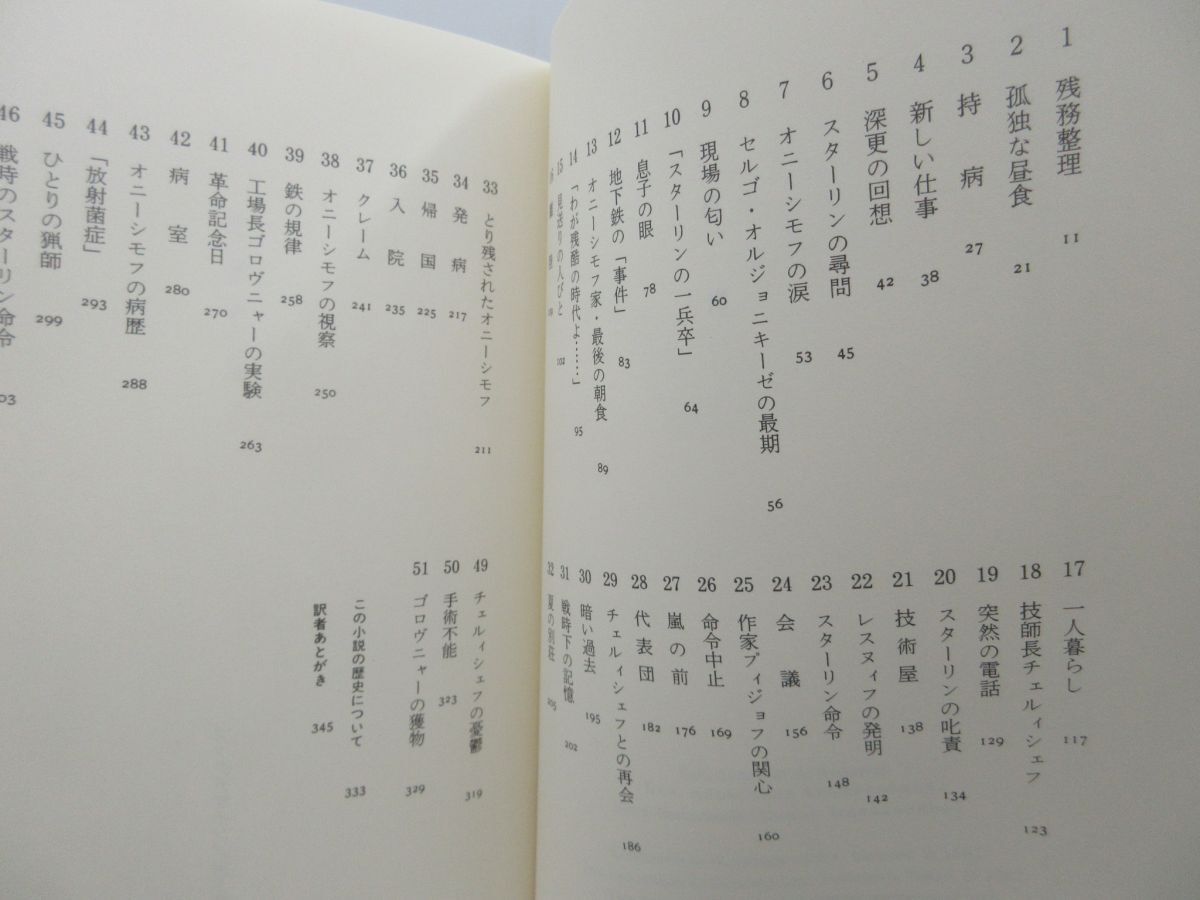 1 残務整理 11
2 孤独な昼食 21
3 持病 27
4 新しい仕事 38
5 深更の回想 42
6 スターリンの尋問 45
7 オニーシモフの涙 53
8 セルゴ・オルジョニキーゼの最期 56
9 現場の匂い 60
10 「スターリンの一兵卒」 64
11 息子の眼 78
12 地下鉄の「事件」 83
13 オニーシモフ家・最後の朝食 89
14 「わが残酷の時代よ……」 95
15 見送りの人びと 102
17 一人暮らし 117
18 技師長チェルィシェフ 123
19 突然の電話 129
20 スターリンの叱責 134
21 技術屋 138
22 レスヌィフの発明 142
23 スターリン命令 148
24 会議 156
25 作家プィジョフの関心 160
26 命令中止 169
27 嵐の前 176
28 代表団 182
29 チェルィシェフとの再会 186
30 暗い過去 195
31 戦時下の記憶 202
32 夏の別荘 205
33 とり残されたオニーシモフ 211
34 発病 217
35 帰国 225
36 入院 235
37 クレーム 241
38 オニーシモフの視察 250
39 鉄の規律 258
40 工場長ゴロヴニャーの実験 263
41 革命記念日 270
42 病室 280
43 オニーシモフの病歴 288
44 「放射菌症」 293
45 ひとりの猟師 299
46 戦時のスターリン命令 03
49 チェルィシェフの憂鬱 319
50 手術不能 323
51 ゴロヴニャーの獲物 329
この小説の歴史について 333
訳者あとがき 345